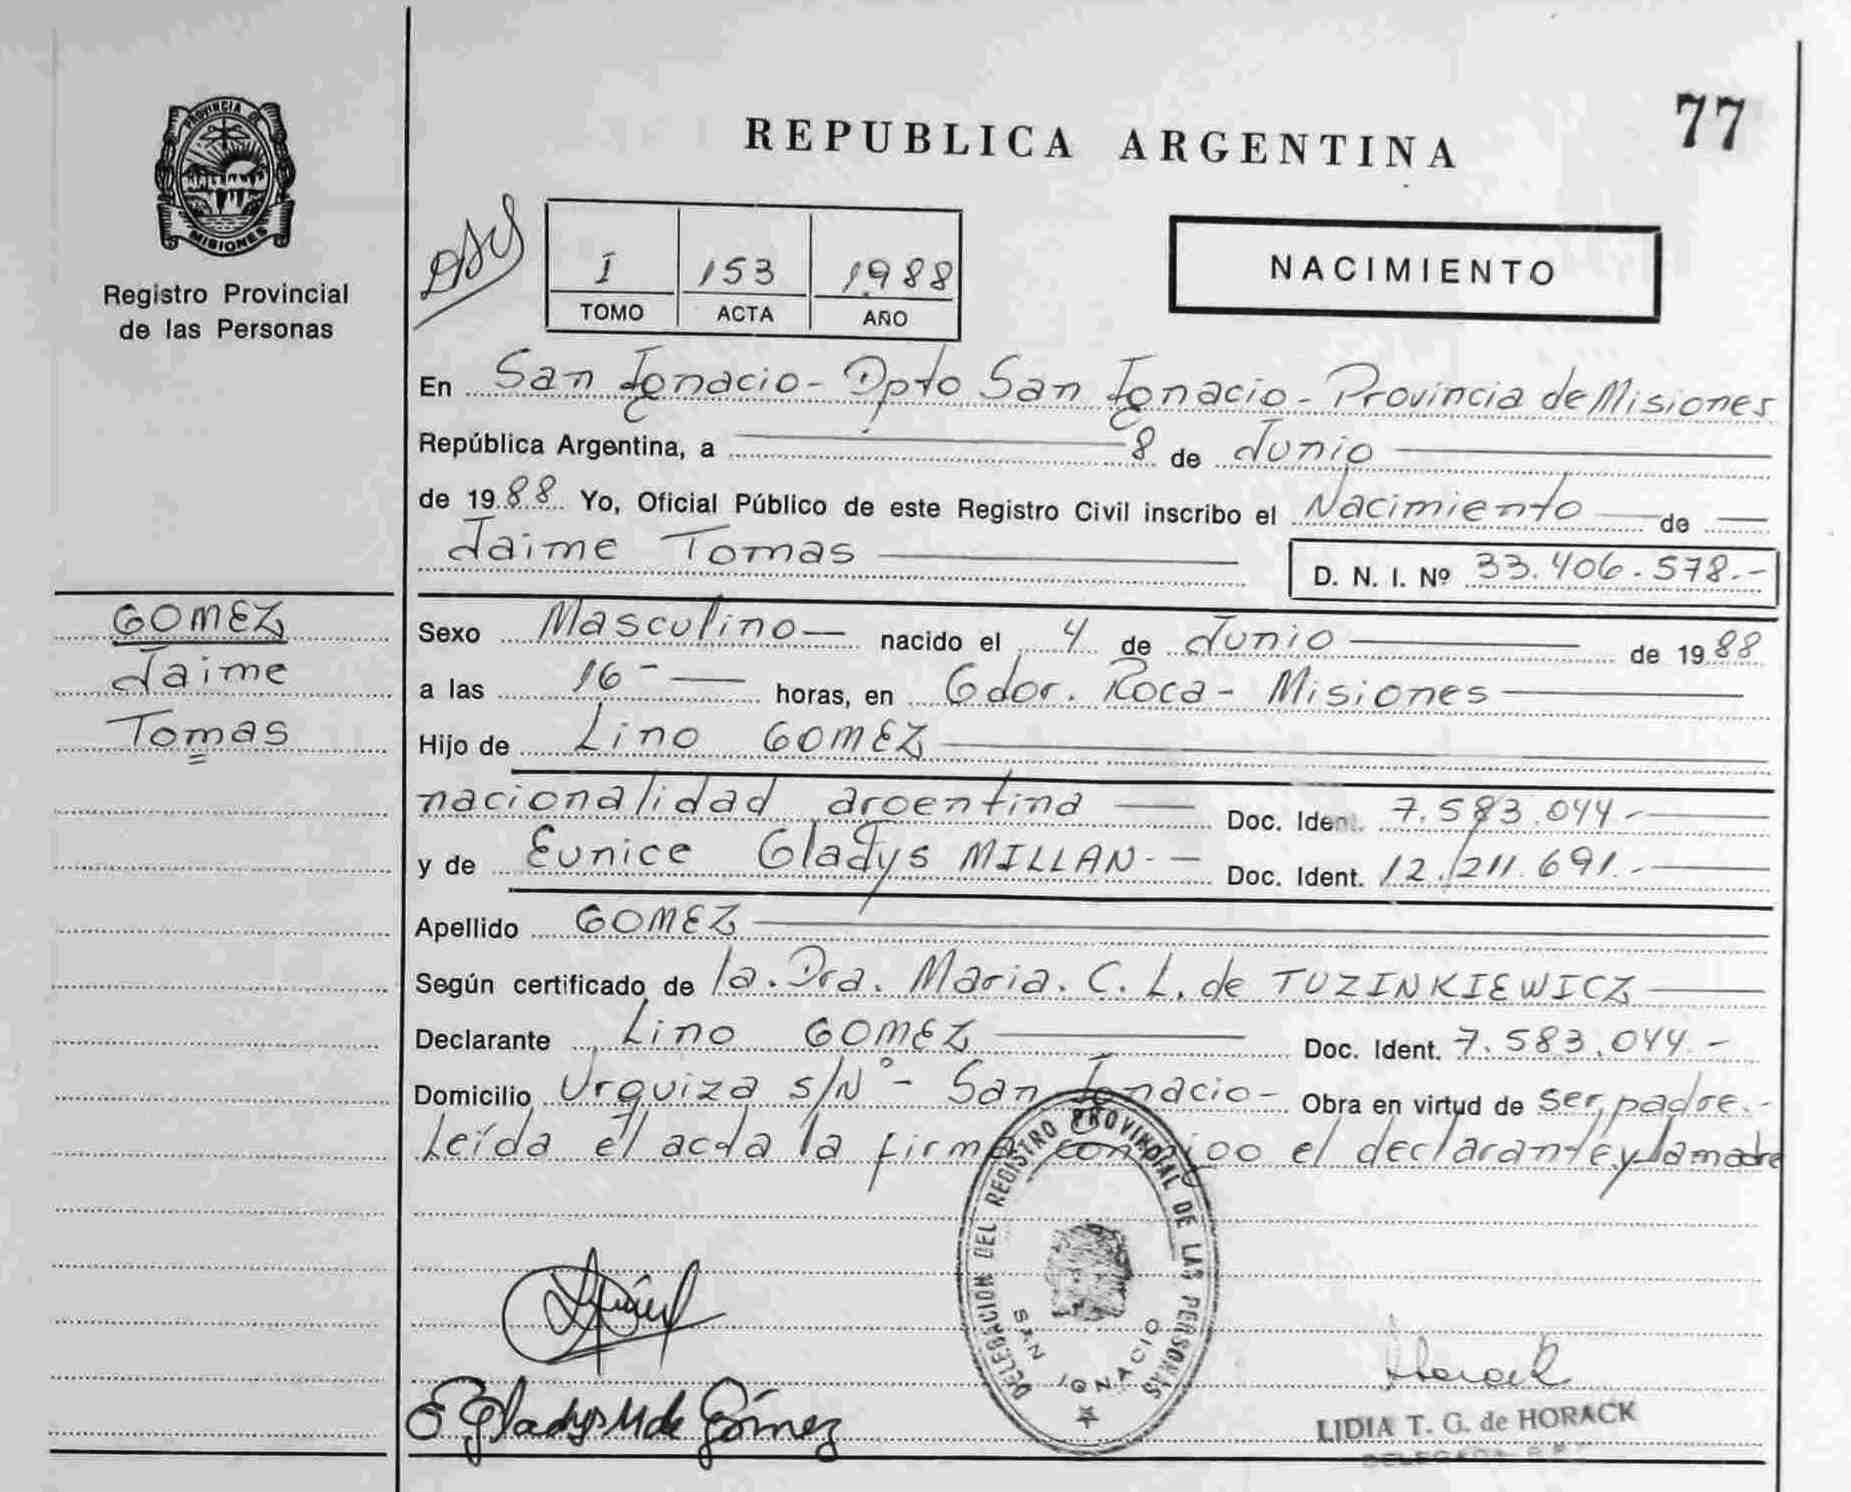 77
REPUBLICA ARGENTINA
PROVINCIA DE MISIONES
Registro Provincial
de las Personas
I 153 1988
TOMO ACTA AÑO
NACIMIENTO
En San Ignacio - Dpto San Ignacio - Provincia de Misiones
República Argentina, a 8 de Junio
de 1988 Yo, Oficial Público de este Registro Civil inscribo el Nacimiento de
Jaime Tomas D. N. I. Nº 33.406.578.-
GOMEZ
Jaime
Tomas
Sexo Masculino nacido el 4 de Junio de 1988
a las 16 - horas, en Gdor. Roca - Misiones
Hijo de Lino GOMEZ
nacionalidad argentina Doc. Ident. 7.583.044.-
y de Eunice Gladys MILLAN.- Doc. Ident. 12.211.691.-
Apellido GOMEZ
Según certificado de la. Dra. Maria. C. L. de TUZINKIEWICZ
Declarante Lino GOMEZ Doc. Ident. 7.583.044.-
Domicilio Urquiza s/Nº - San Ignacio - Obra en virtud de ser padre.-
Leída el acta la firma conmigo el declarante y la madre
DELEGACION DEL REGISTRO PROVINCIAL DE LAS PERSONAS
SAN IGNACIO
E Gladys M de Gómez
Horack
LIDIA T. G. de HORACK
DELEGADA